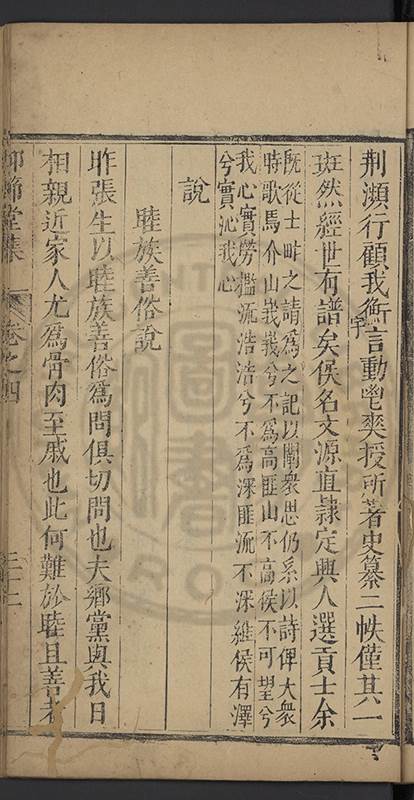 荆瀕行顧我衡宇言動鬯爽授所著史纂二帙僅其一
斑然經世有譜矣侯名文源直隷定興人選貢士余
旣從士之請爲之記以闡衆思仍系以詩俾大衆
時歌馬介山峩峩兮不爲高匪山不高侯不可望兮
我心實勞㵎流浩浩兮不爲深匪流不深維侯有澤
兮實沁我心
說
睦族善俗說
昨張生以睦族善俗爲問俱切問也夫鄉黨與我日
相親近家人尤爲骨肉至戚也此何難於睦且善者
仰節堂集
卷之四
三十二